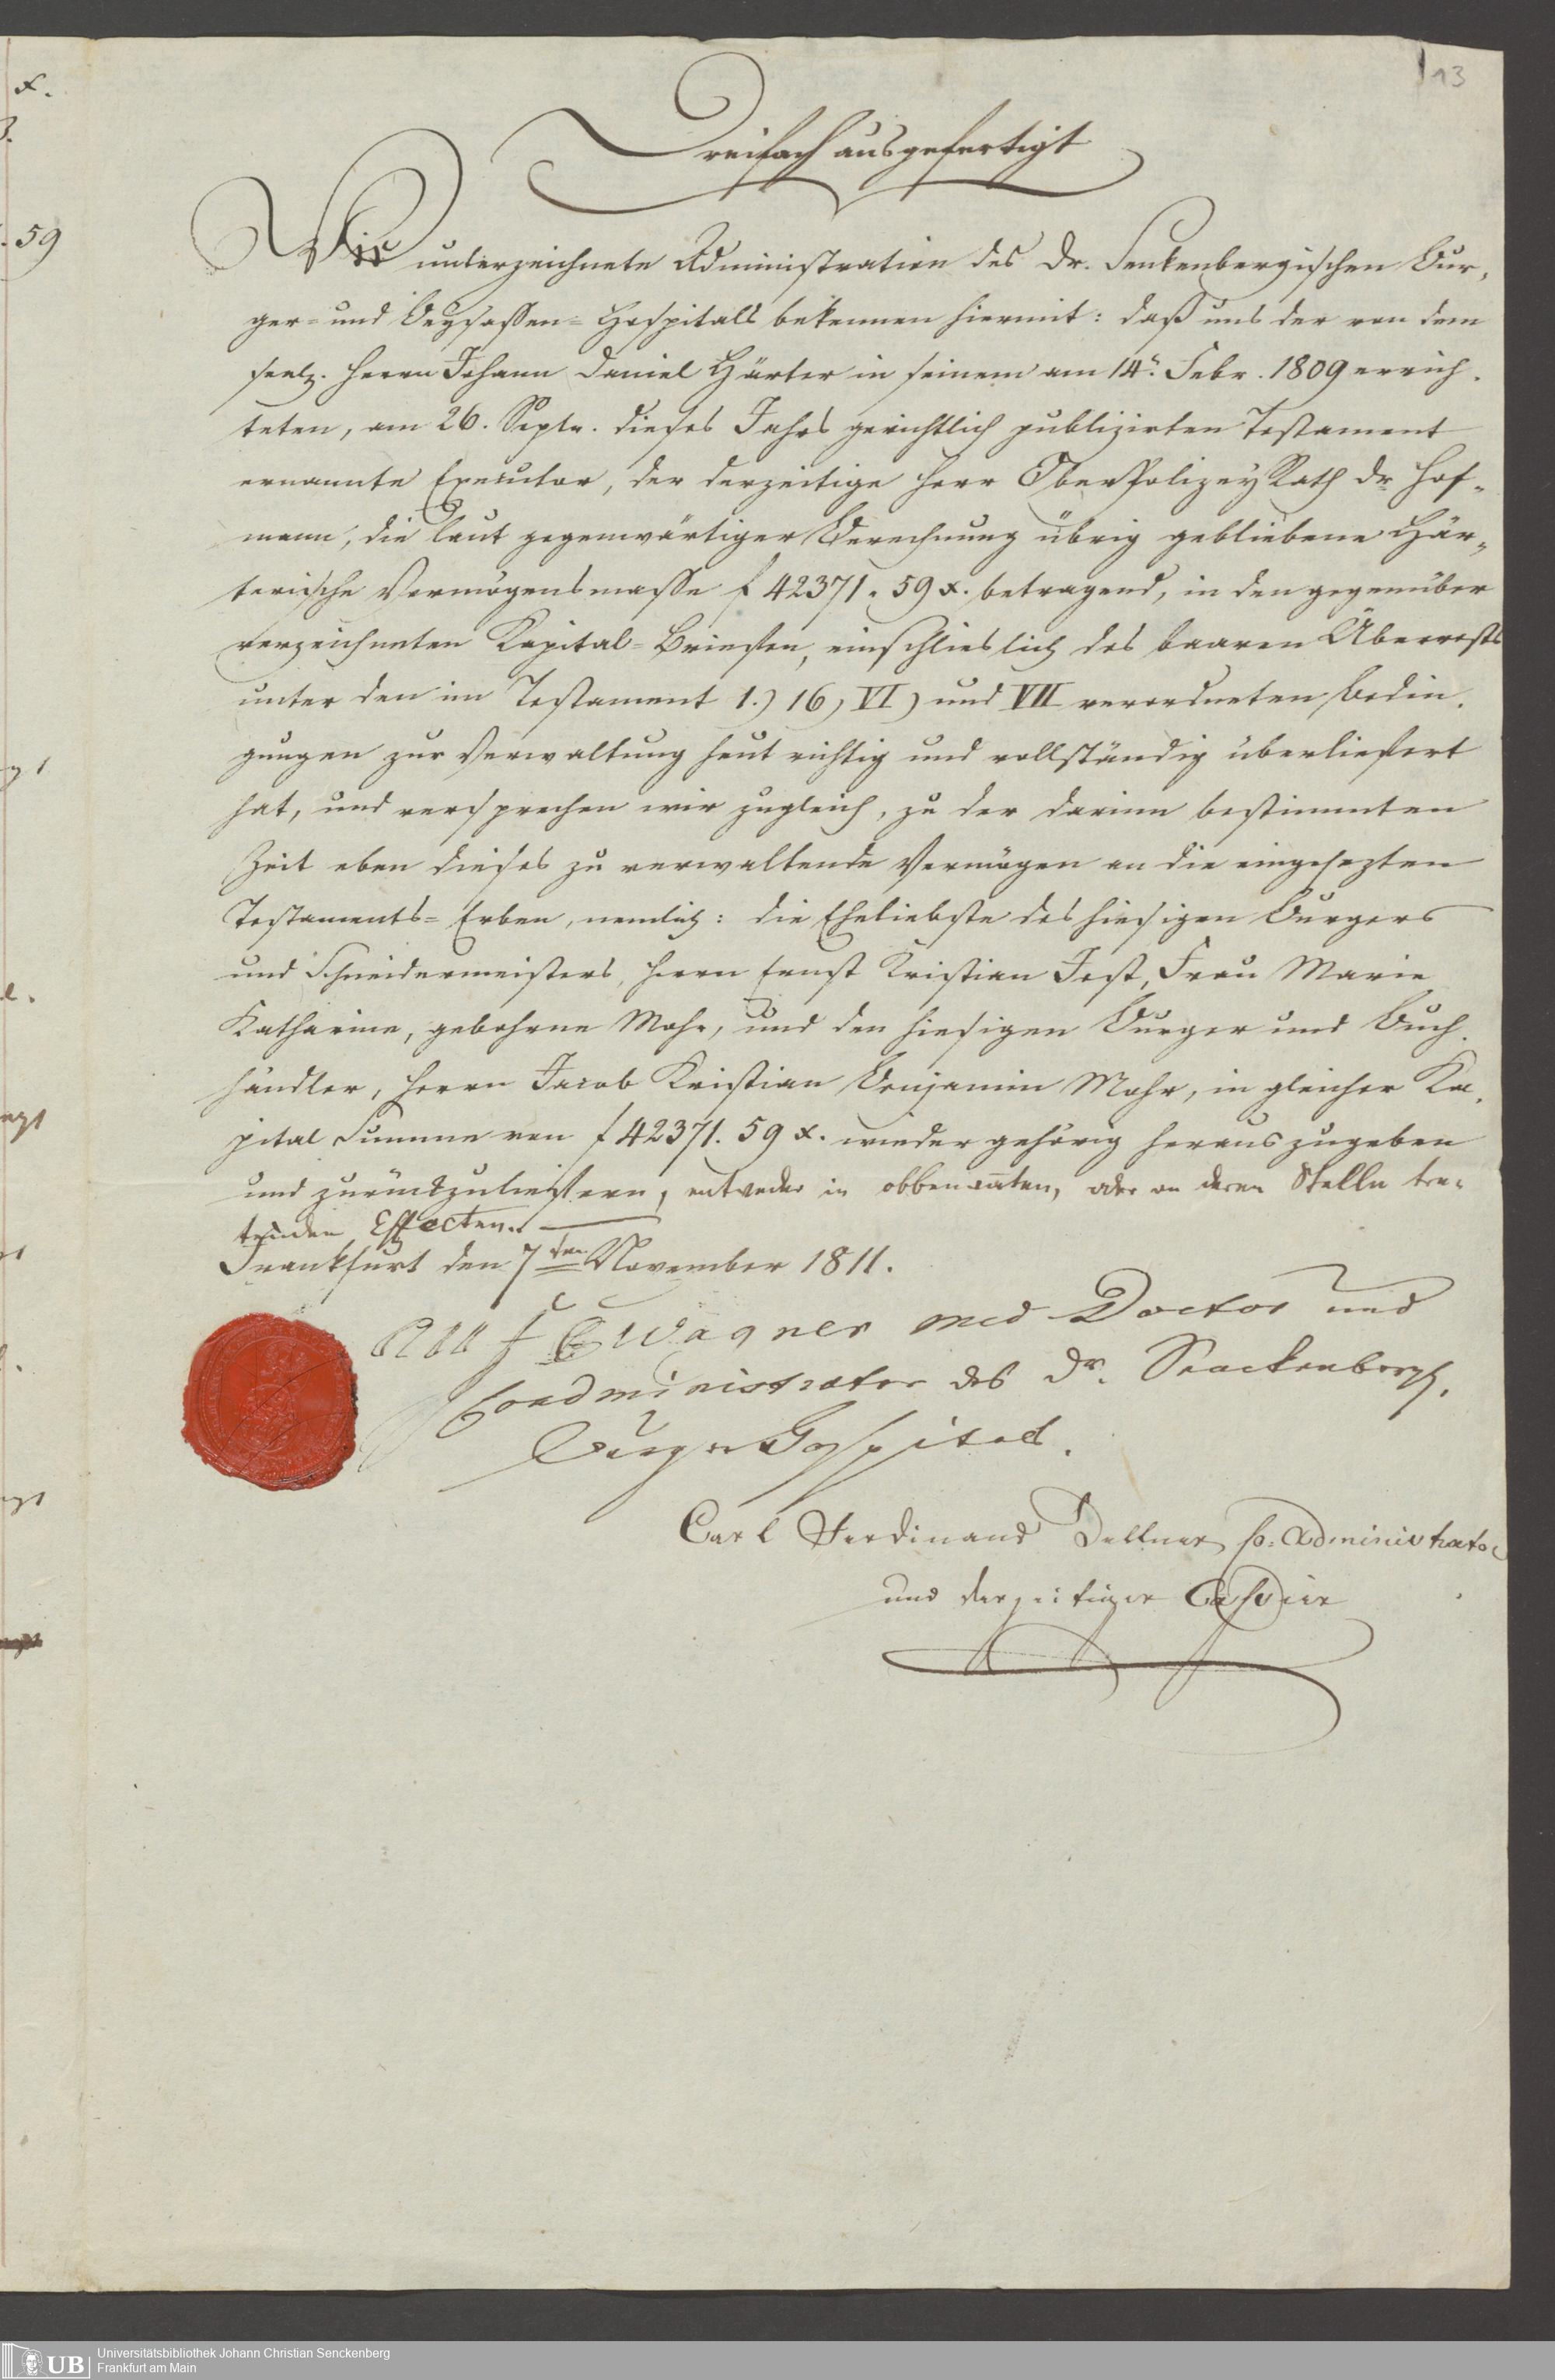 13
Dreifach ausgefertigt
Wir unterzeichnete Administration des Dr. Senkenbergischen Bur-
ger- und Beysassen-Hospitals bekennen hiermit: daß uns der von dem
seelg. Herrn Johann Daniel Härter in seinem am 14n. Febr. 1809 errich-
teten, am 26. Septr. dieses Jahrs gerichtlich publizirten Testament
ernannte Executor, der derzeitige Herr OberPolizeyRath Dr Hof-
mann, die laut gegenwärtiger Berechnung übrig gebliebene Här-
terische Vermögensmasse f 42371. 59 x. betragend, in den gegenüber
verzeichneten Kapital-Briefen, einschlieslich des baaren Überrests
unter den im Testament 1.) 16, VI) und VII verordneten Bedin-
gungen zur Verwaltung heut richtig und vollständig überliefert
hat, und versprechen wir zugleich, zu der darinn bestimmten
Zeit eben dieses zu verwaltende Vermögen an die eingesezten
Testaments-Erben, nemlich: die Eheliebste des hiesigen Burgers
und Schneidermeisters, Herrn Ernst Kristian Jost, Frau Marie
Katharine, gebohrne Mohr, und den hiesigen Burger und Buch-
händler, Herrn Jacob Kristian Benjamin Mohr, in gleicher Ka-
pital Summe von f 42371. 59 x. wieder gehörig herauszugeben
und zurückzuliefern, entweder in obbenannten, oder an deren Stelle tre-
tenden Effecten.
Frankfurt den 7ten November 1811.
Wagner med Doctor und
Coadministrator des Dr. Senckenbergsch.
Burger Hospital.
Carl Ferdinand Dellner, Co: Administrator
und derzeitiger Cassier
59
Universitätsbibliothek Johann Christian Senckenberg
Frankfurt am Main
UB